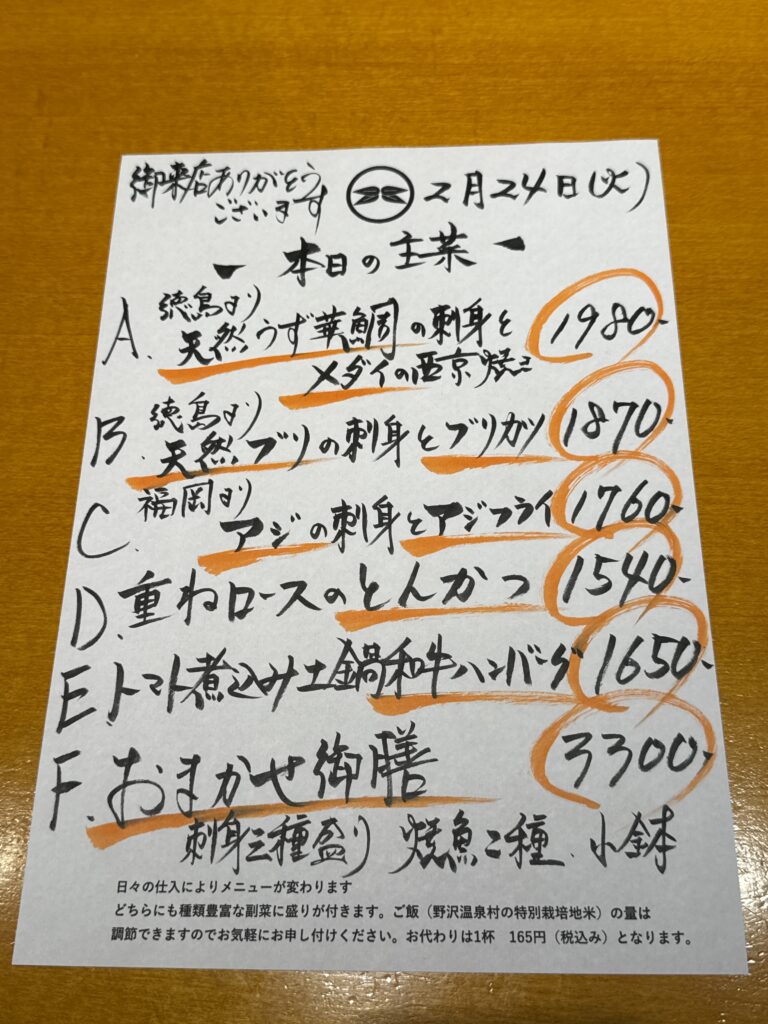 御来店ありがとう
ございます
2月24日(火)
本日の主菜
A. 徳島より
天然うず華鯛の刺身と
メダイの西京焼き
1980-
B. 徳島より
天然ブリの刺身とブリカツ
1870-
C. 福岡より
アジの刺身とアジフライ
1760-
D. 重ねロースのとんかつ
1540-
E. トマト煮込み土鍋和牛ハンバーグ
1650-
F. おまかせ御膳
3300-
刺身三種盛り 焼魚二種、小鉢
日々の仕入によりメニューが変わります
どちらにも種類豊富な副菜に盛りが付きます。ご飯（野沢温泉村の特別栽培地米）の量は
調節できますのでお気軽にお申し付けください。お代わりは1杯 165円（税込み）となります。